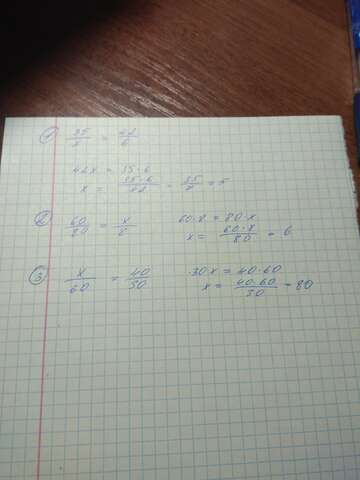 ① 35/x = 42/6
42x = 35·6
x = 35·6/42 = 35/7 = 5
② 60/80 = x/8 60·8 = 80·x
x = 60·8/80 = 6
③ x/60 = 40/30 30x = 40·60
x = 40·60/30 = 80